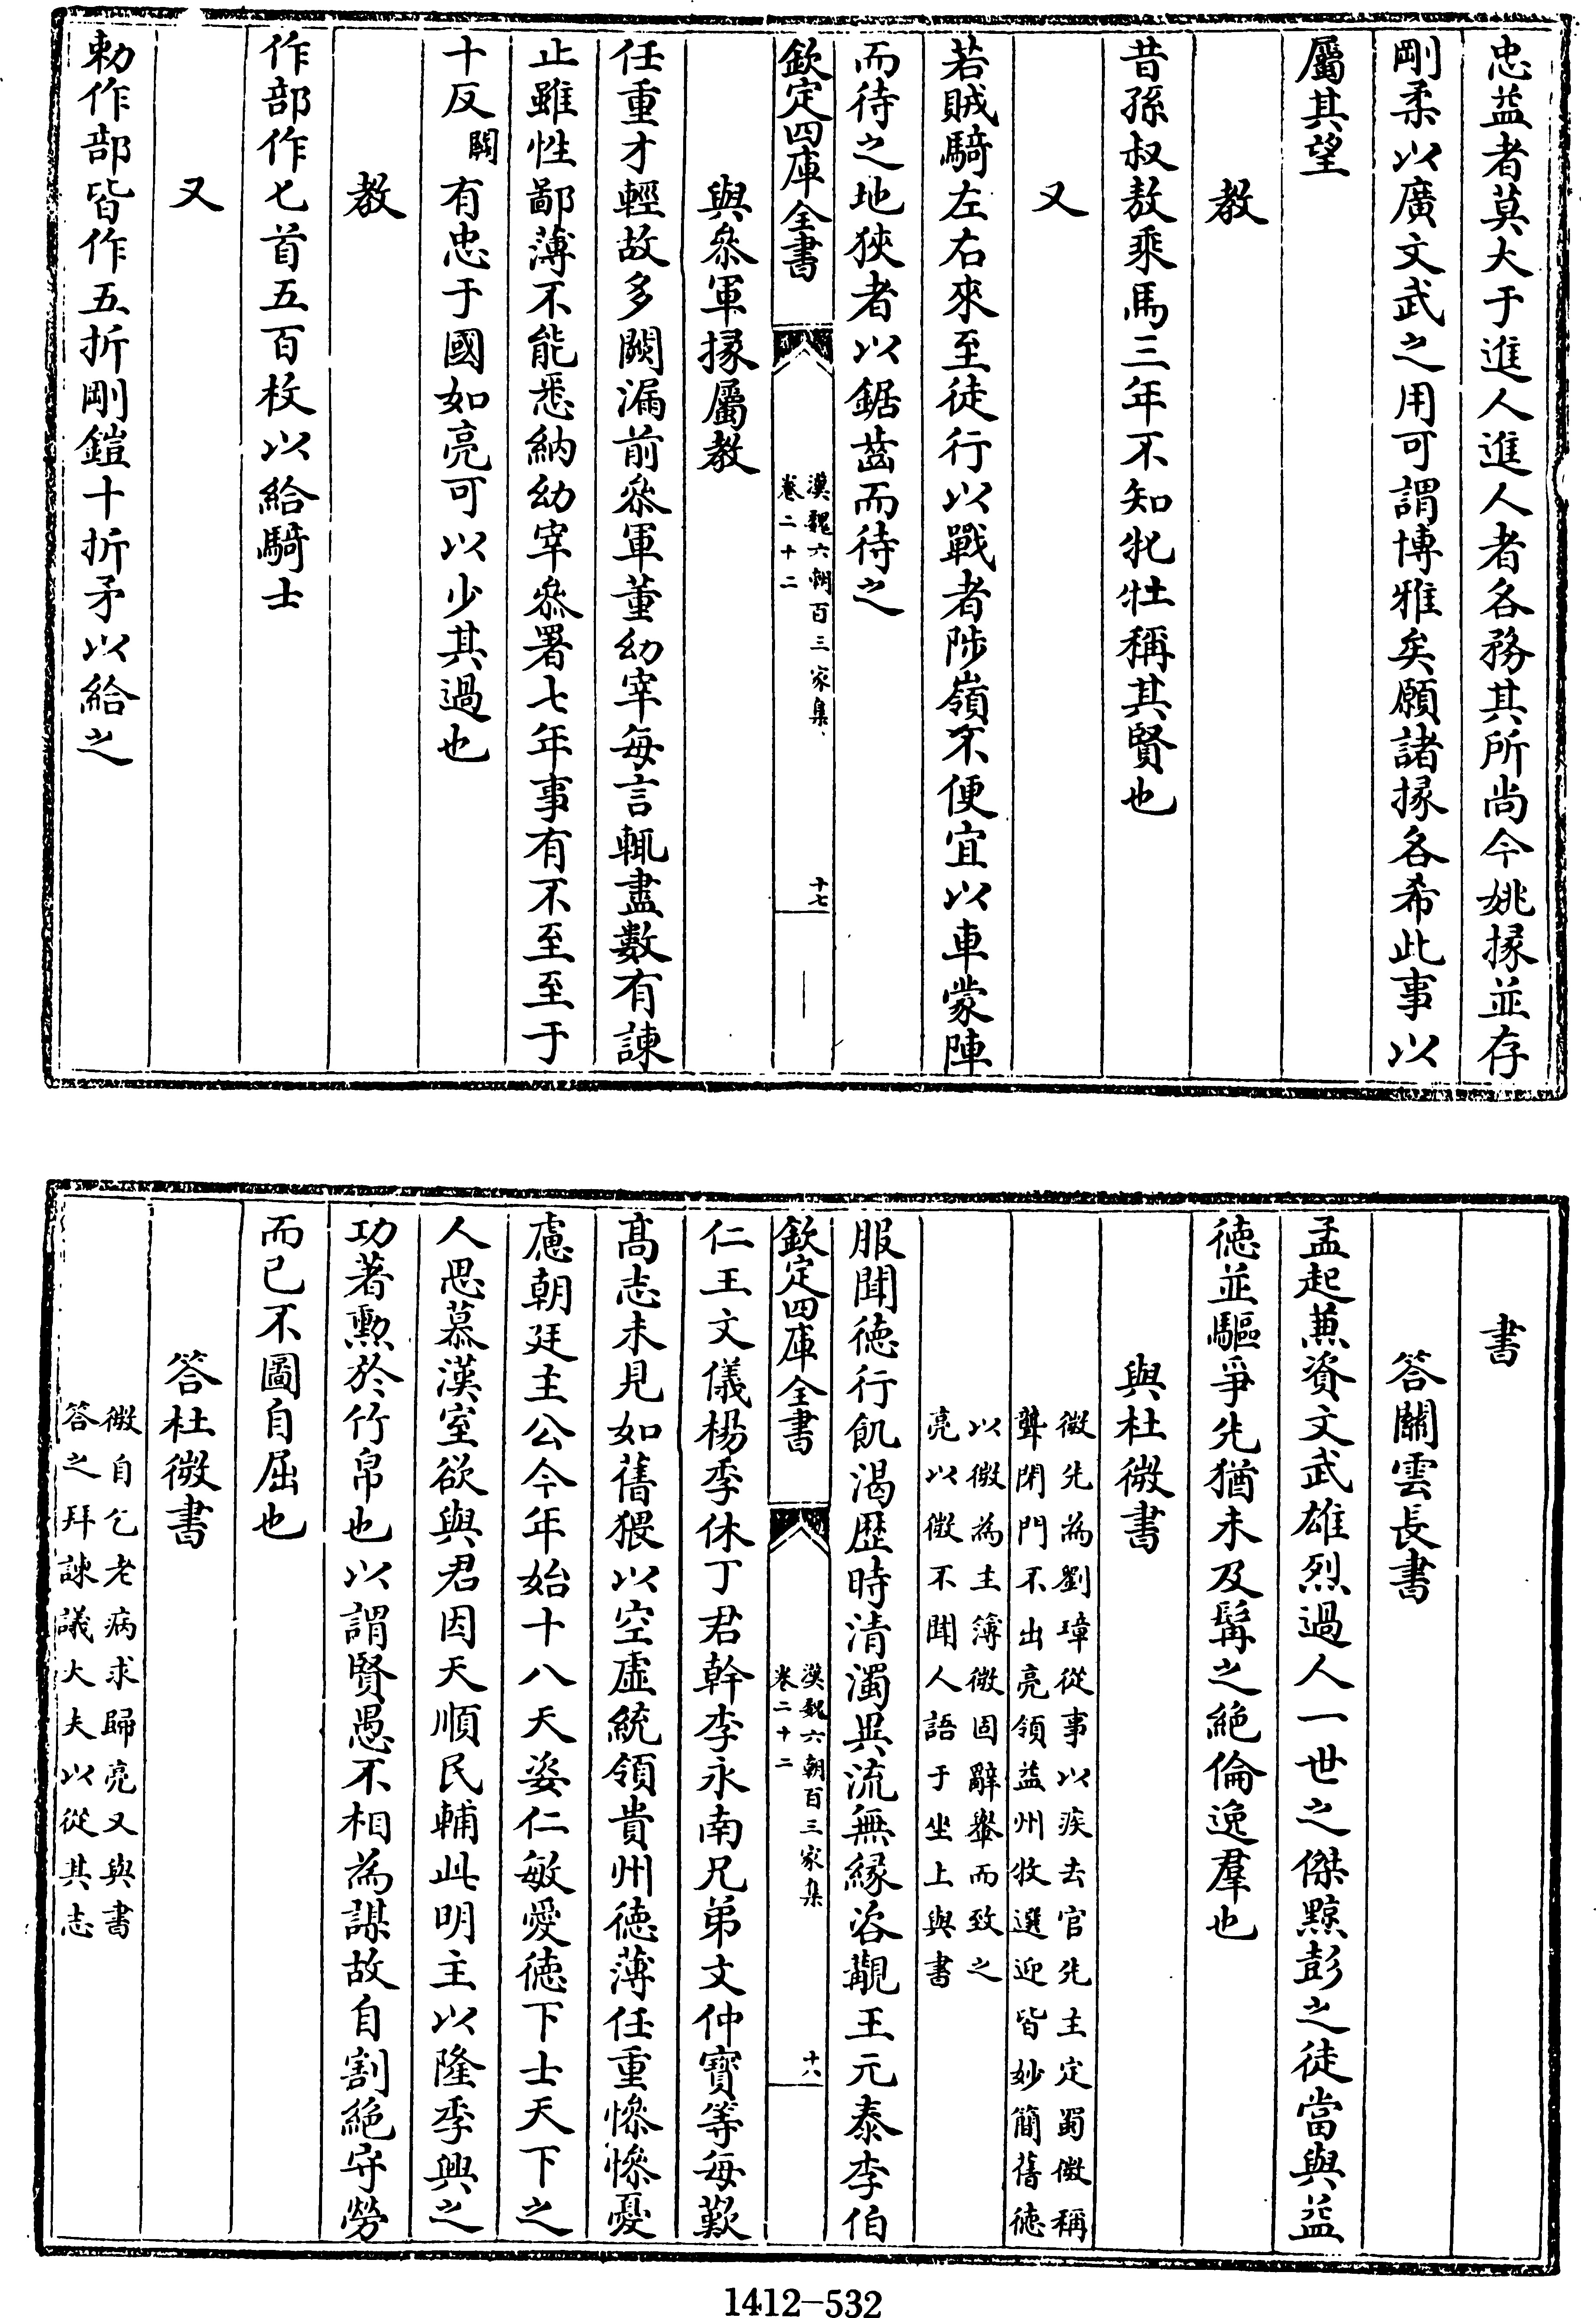 忠益者莫大于進人進人者各務其所尚今姚掾並存
剛柔以廣文武之用可謂博雅矣願諸掾各希此事以
屬其望
教
昔孫叔敖乘馬三年不知牝牡稱其賢也
又
若賊騎左右來至徒行以戰者陟嶺不便宜以車蒙陣
而待之地狹者以鋸齒而待之
欽定四庫全書
漢魏六朝百三家集
卷二十二
十七
與叅軍掾屬教
任重才輕故多闕漏前叅軍董幼宰每言輒盡數有諫
止雖性鄙薄不能悉納幼宰叅署七年事有不至至于
十反闕有忠于國如亮可以少其過也
教
作部作匕首五百枚以給騎士
又
勅作部皆作五折剛鎧十折矛以給之
書
答關雲長書
孟起兼資文武雄烈過人一世之傑黥彭之徒當與益
徳並驅爭先猶未及髯之絶倫逸羣也
與杜微書
微先為劉璋從事以疾去官先主定蜀微稱
聾閉門不出亮領益州牧選迎皆妙簡舊徳
以微為主簿微固辭轝而致之
亮以微不聞人語于坐上與書
服聞徳行飢渴歴時清濁異流無緣咨覯王元泰李伯
欽定四庫全書
漢魏六朝百三家集
卷二十二
十八
仁王文儀楊季休丁君幹李永南兄弟文仲寶等每歎
髙志未見如舊猥以空虚統領貴州徳薄任重慘慘憂
慮朝廷主公今年始十八天姿仁敏愛徳下士天下之
人思慕漢室欲與君因天順民輔此明主以隆季興之
功著勲於竹帛也以謂賢愚不相為謀故自割絶守勞
而已不圖自屈也
答杜微書
微自乞老病求歸亮又與書
答之拜諫議大夫以從其志
1412-532